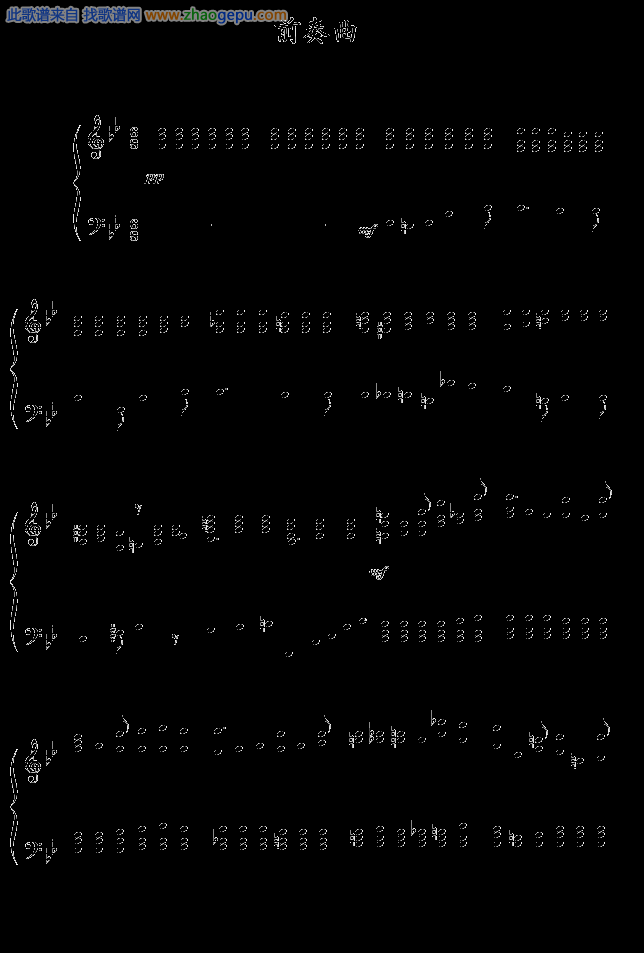 此歌谱来自 找歌谱网 www.zhaogepu.com
前奏曲
pp
mf
mf